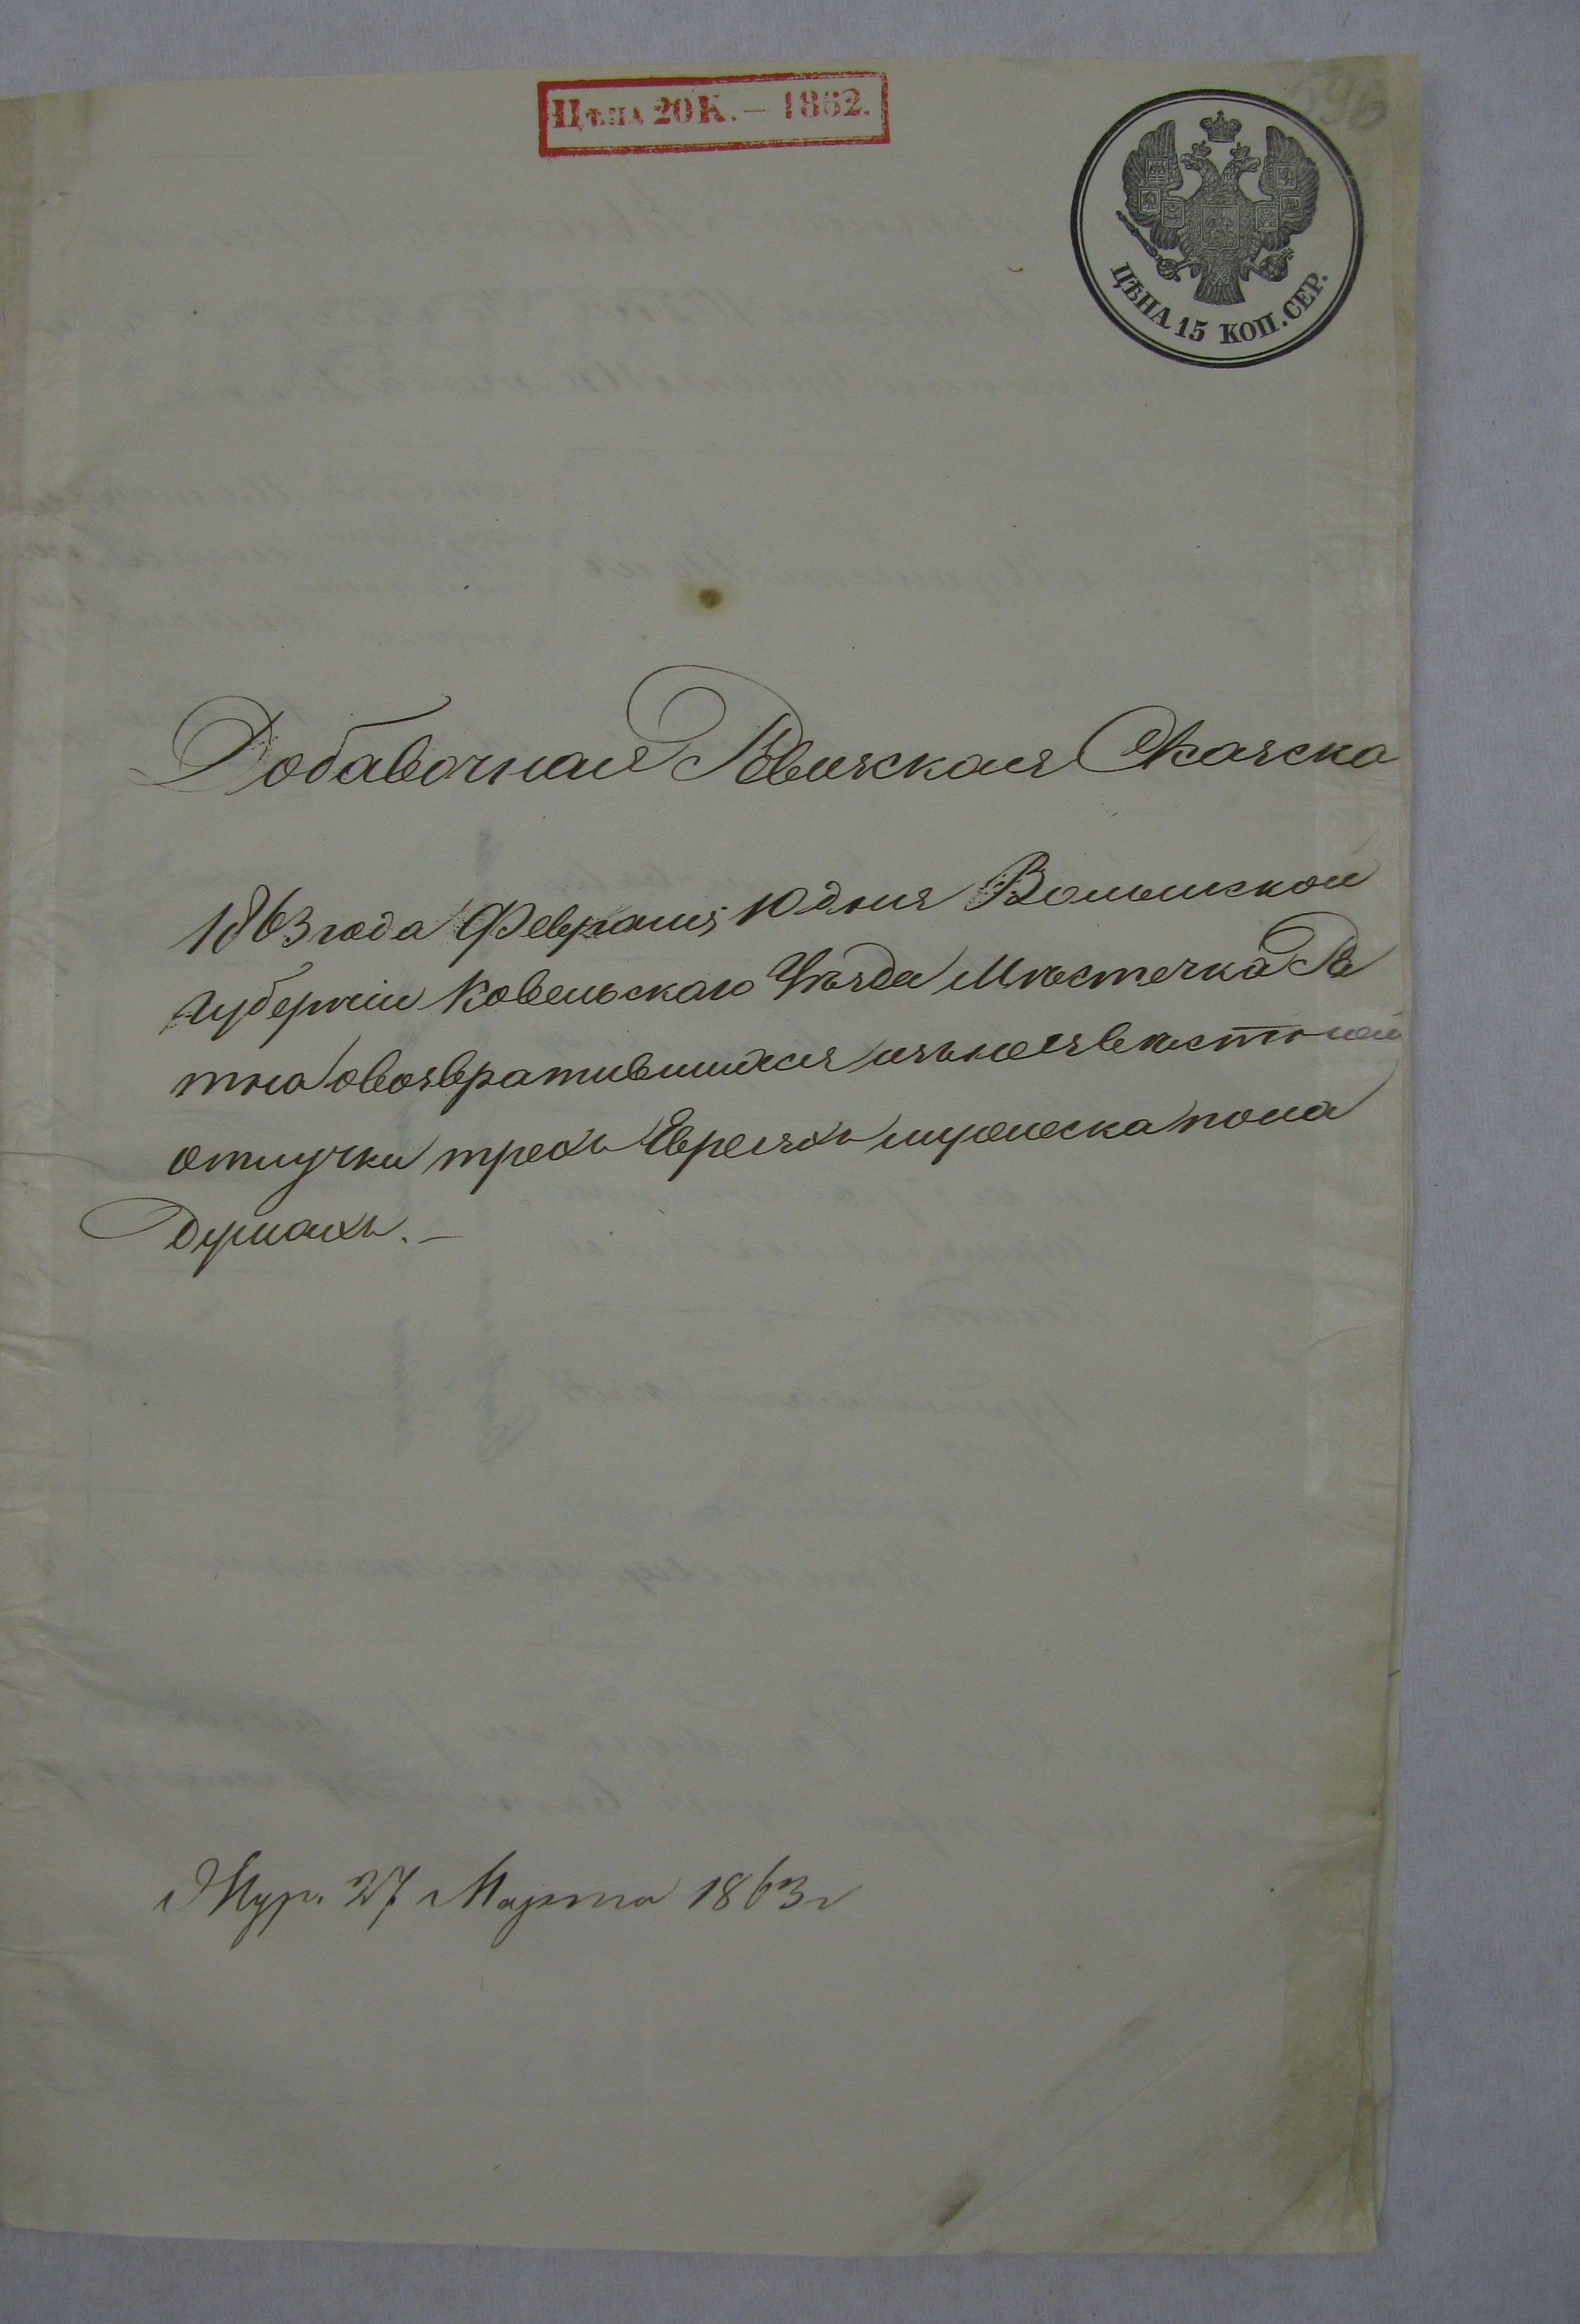 Цѣна 20 К. — 1862.
ЦѢНА 15 КОП. СЕР.
Добавочная Ревижская Скаска
1863 года Февраля 10 дня Волынской
Губерніи Ковельскаго Уѣзда Мѣстечка Ра
тна овозвратившихся изъ неизвѣстной
отлучки трехъ Евреяхъ мужеска пола
душахъ. —
Жур. 27 Марта 1863 г